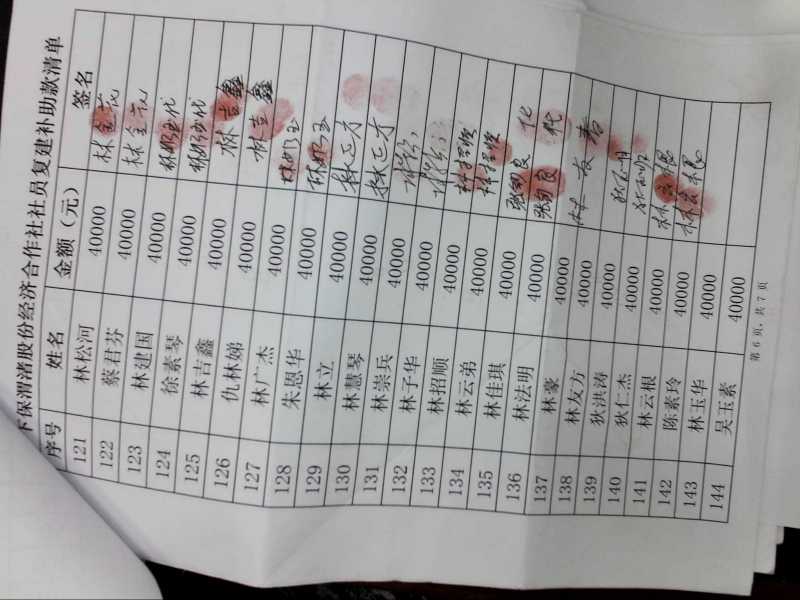 下保渭渚股份经济合作社社员复建补助款清单
序号 姓名 金额（元） 签名
121 林松河 40000 林金花
122 蔡君芬 40000 林金花
123 林建国 40000
124 徐素琴 40000
125 林吉鑫 40000 林吉鑫
126 仇林娣 40000 林吉鑫
127 林广杰 40000
128 朱恩华 40000
129 林立 40000 林正才
130 林慧琴 40000 林正才
131 林崇兵 40000
132 林子华 40000
133 林招顺 40000
134 林云弟 40000
135 林佳琪 40000
136 林法明 40000
137 林豪 40000
138 林友方 40000
139 狄洪涛 40000
140 狄仁杰 40000
141 林云根 40000
142 陈素玲 40000
143 林玉华 40000
144 吴玉素 40000
第 6 页，共 7 页